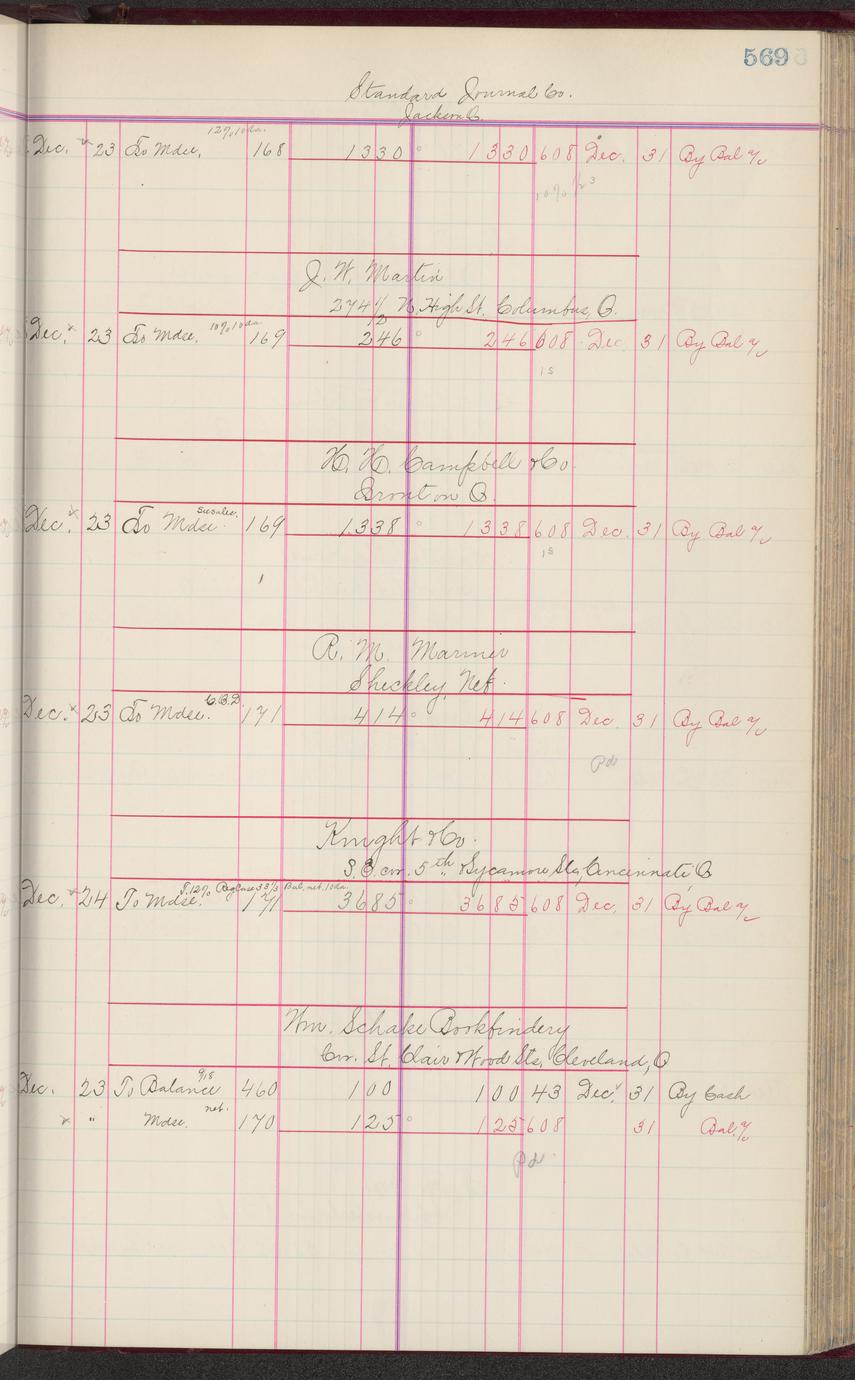 569
Standard Journal Co.
Jackson O.
12% 10 da.
Dec. 23 To Mdse. 168 1330 1330 608 Dec. 31 By Bal a/c
10%
J. W. Martin
274 1/2 N. High St. Columbus, O.
10% 10 da
Dec. 23 To Mdse. 169 246 246 608 Dec 31 By Bal a/c
15
H. H. Campbell & Co.
Ironton O.
Dec. 23 To Mdse. 169 1338 1338 608 Dec. 31 By Bal a/c
15
R. M. Marmer
Sheckley, Neb.
C.O.D.
Dec. 23 To Mdse. 171 414 414 608 Dec 31 By Bal a/c
Pd
Knight & Co.
S.E. cor. 5th & Sycamore Sts, Cincinnati O
Bal. net. 10 da.
Dec. 24 To Mdse. 171 3685 3685 608 Dec. 31 By Bal a/c
Wm. Schake Bookbindery
Cor. St. Clair & Wood Sts, Cleveland, O
Dec. 23 To Balance 460 100 100 43 Dec. 31 By Cash
net.
" Mdse. 170 125 125 608 31 Bal. a/c
Pd